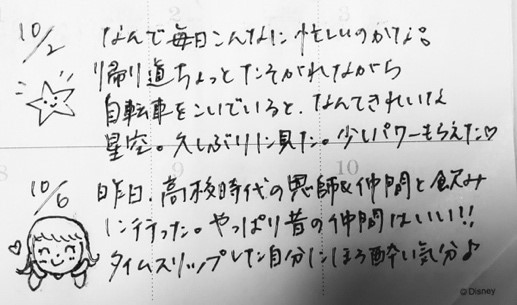 10/2
なんで毎日こんなに忙しいのかな。
帰り道ちょっとたそがれながら
自転車をこいでいると、なんてきれいな
星空。久しぶりに見た。少しパワーもらえた♡
9
10
10/6
昨日、高校時代の恩師&仲間と飲み
に行った。やっぱり昔の仲間はいい!!
タイムスリップした自分にほろ酔い気分♪
©Disney